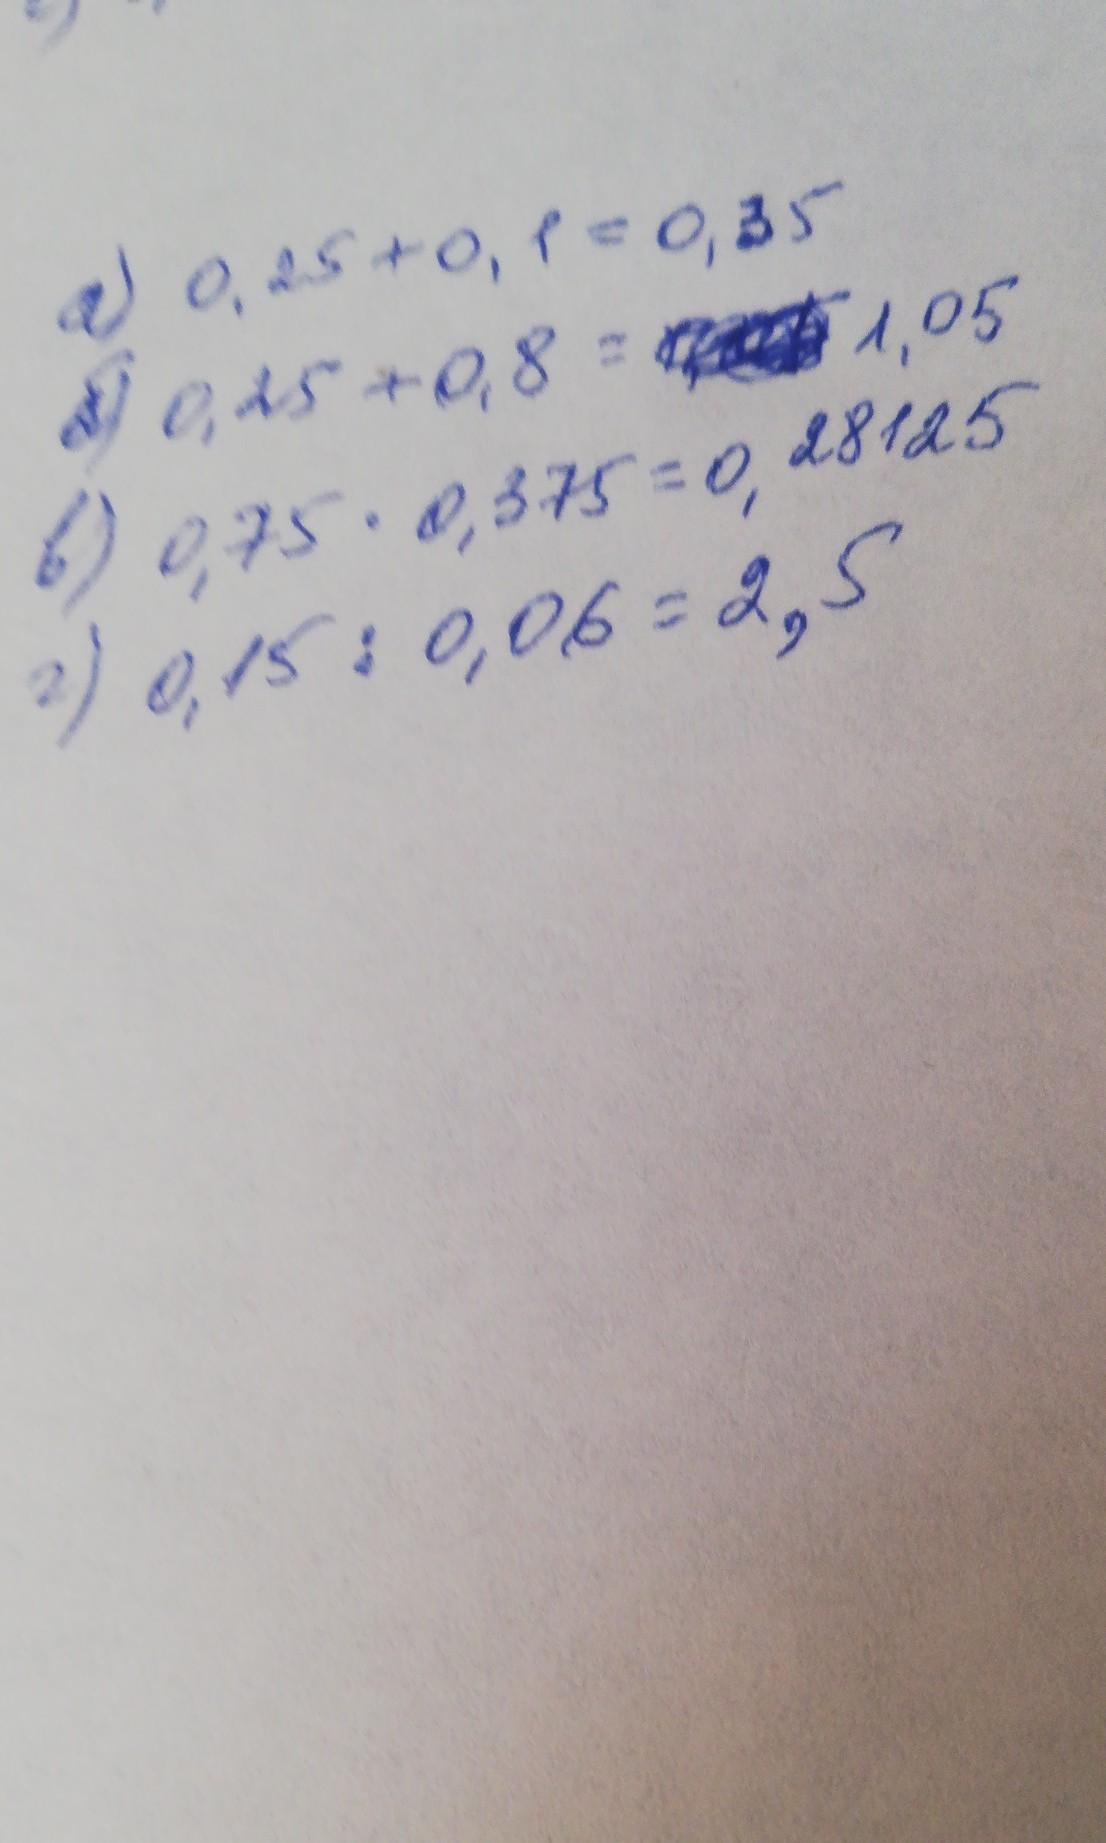 а) 0,25 + 0,1 = 0,35
б) 0,25 + 0,8 = 1,05
в) 0,75 · 0,375 = 0,28125
г) 0,15 : 0,06 = 2,5